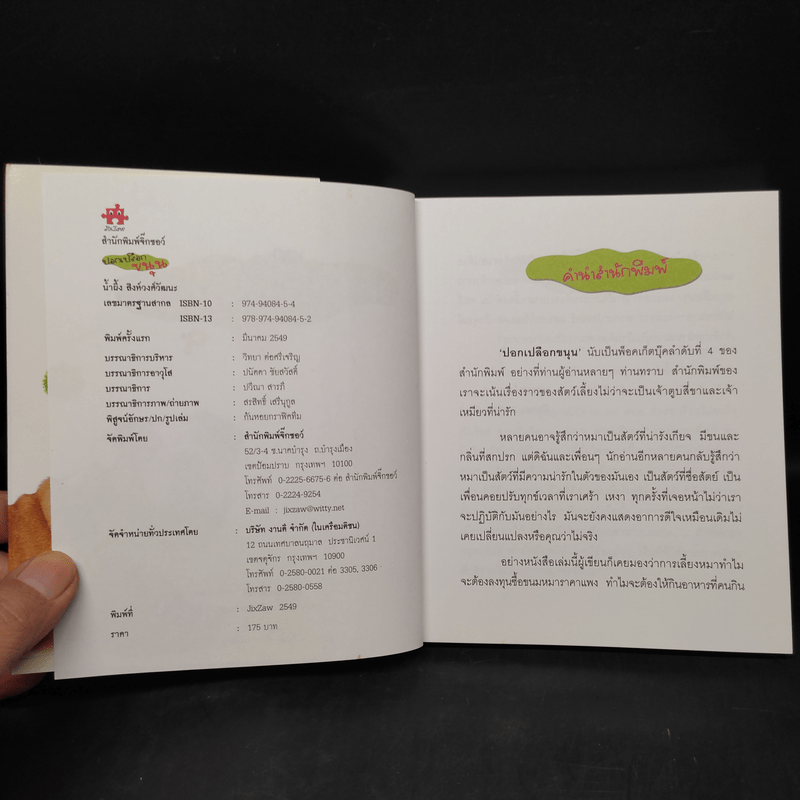 JixZaw
สำนักพิมพ์จิ๊กซอว์
ปอกเปลือก
ขนุน
น้ำผึ้ง สิงห์วงศ์วัฒนะ
เลขมาตรฐานสากล ISBN-10 : 974-94084-5-4
ISBN-13 : 978-974-94084-5-2
พิมพ์ครั้งแรก : มีนาคม 2549
บรรณาธิการบริหาร : วิทยา ต่อศรีเจริญ
บรรณาธิการอาวุโส : ปนัดดา ชัยสวัสดิ์
บรรณาธิการ : ปวีณา สารภี
บรรณาธิการภาพ/ถ่ายภาพ : สรสิทธิ์ เสริมกูล
พิสูจน์อักษร/ปก/รูปเล่ม : กันทอยกราฟิคทีม
จัดพิมพ์โดย : สำนักพิมพ์จิ๊กซอว์
52/3-4 ซ.นาคบำรุง ถ.บำรุงเมือง
เขตป้อมปราบ กรุงเทพฯ 10100
โทรศัพท์ 0-2225-6675-6 ต่อ สำนักพิมพ์จิ๊กซอว์
โทรสาร 0-2224-9254
E-mail : jixzaw@witty.net
จัดจำหน่ายทั่วประเทศโดย : บริษัท งานดี จำกัด (ในเครือมติชน)
12 ถนนเทศบาลนฤมาล ประชานิเวศน์ 1
เขตจตุจักร กรุงเทพฯ 10900
โทรศัพท์ 0-2580-0021 ต่อ 3305, 3306
โทรสาร 0-2580-0558
พิมพ์ที่ : JixZaw 2549
ราคา : 175 บาท
คำนำสำนักพิมพ์
'ปอกเปลือกขนุน' นับเป็นพ็อคเก็ตบุ๊คลำดับที่ 4 ของ
สำนักพิมพ์ อย่างที่ท่านผู้อ่านหลายๆ ท่านทราบ สำนักพิมพ์ของ
เราจะเน้นเรื่องราวของสัตว์เลี้ยงไม่ว่าจะเป็นเจ้าตูบสี่ขาและเจ้า
เหมียวที่น่ารัก
หลายคนอาจรู้สึกว่าหมาเป็นสัตว์ที่น่ารังเกียจ มีขนและ
กลิ่นที่สกปรก แต่ดิฉันและเพื่อนๆ นักอ่านอีกหลายคนกลับรู้สึกว่า
หมาเป็นสัตว์ที่มีความน่ารักในตัวของมันเอง เป็นสัตว์ที่ซื่อสัตย์ เป็น
เพื่อนคอยปรับทุกข์เวลาที่เราเศร้า เหงา ทุกครั้งที่เจอหน้าไม่ว่าเรา
จะปฏิบัติกับมันอย่างไร มันจะยังคงแสดงอาการดีใจเหมือนเดิมไม่
เคยเปลี่ยนแปลงหรือคุณว่าไม่จริง
อย่างหนังสือเล่มนี้ผู้เขียนก็เคยมองว่าการเลี้ยงหมาทำไม
จะต้องลงทุนซื้อขนมหมาราคาแพง ทำไมจะต้องให้กินอาหารที่คนกิน